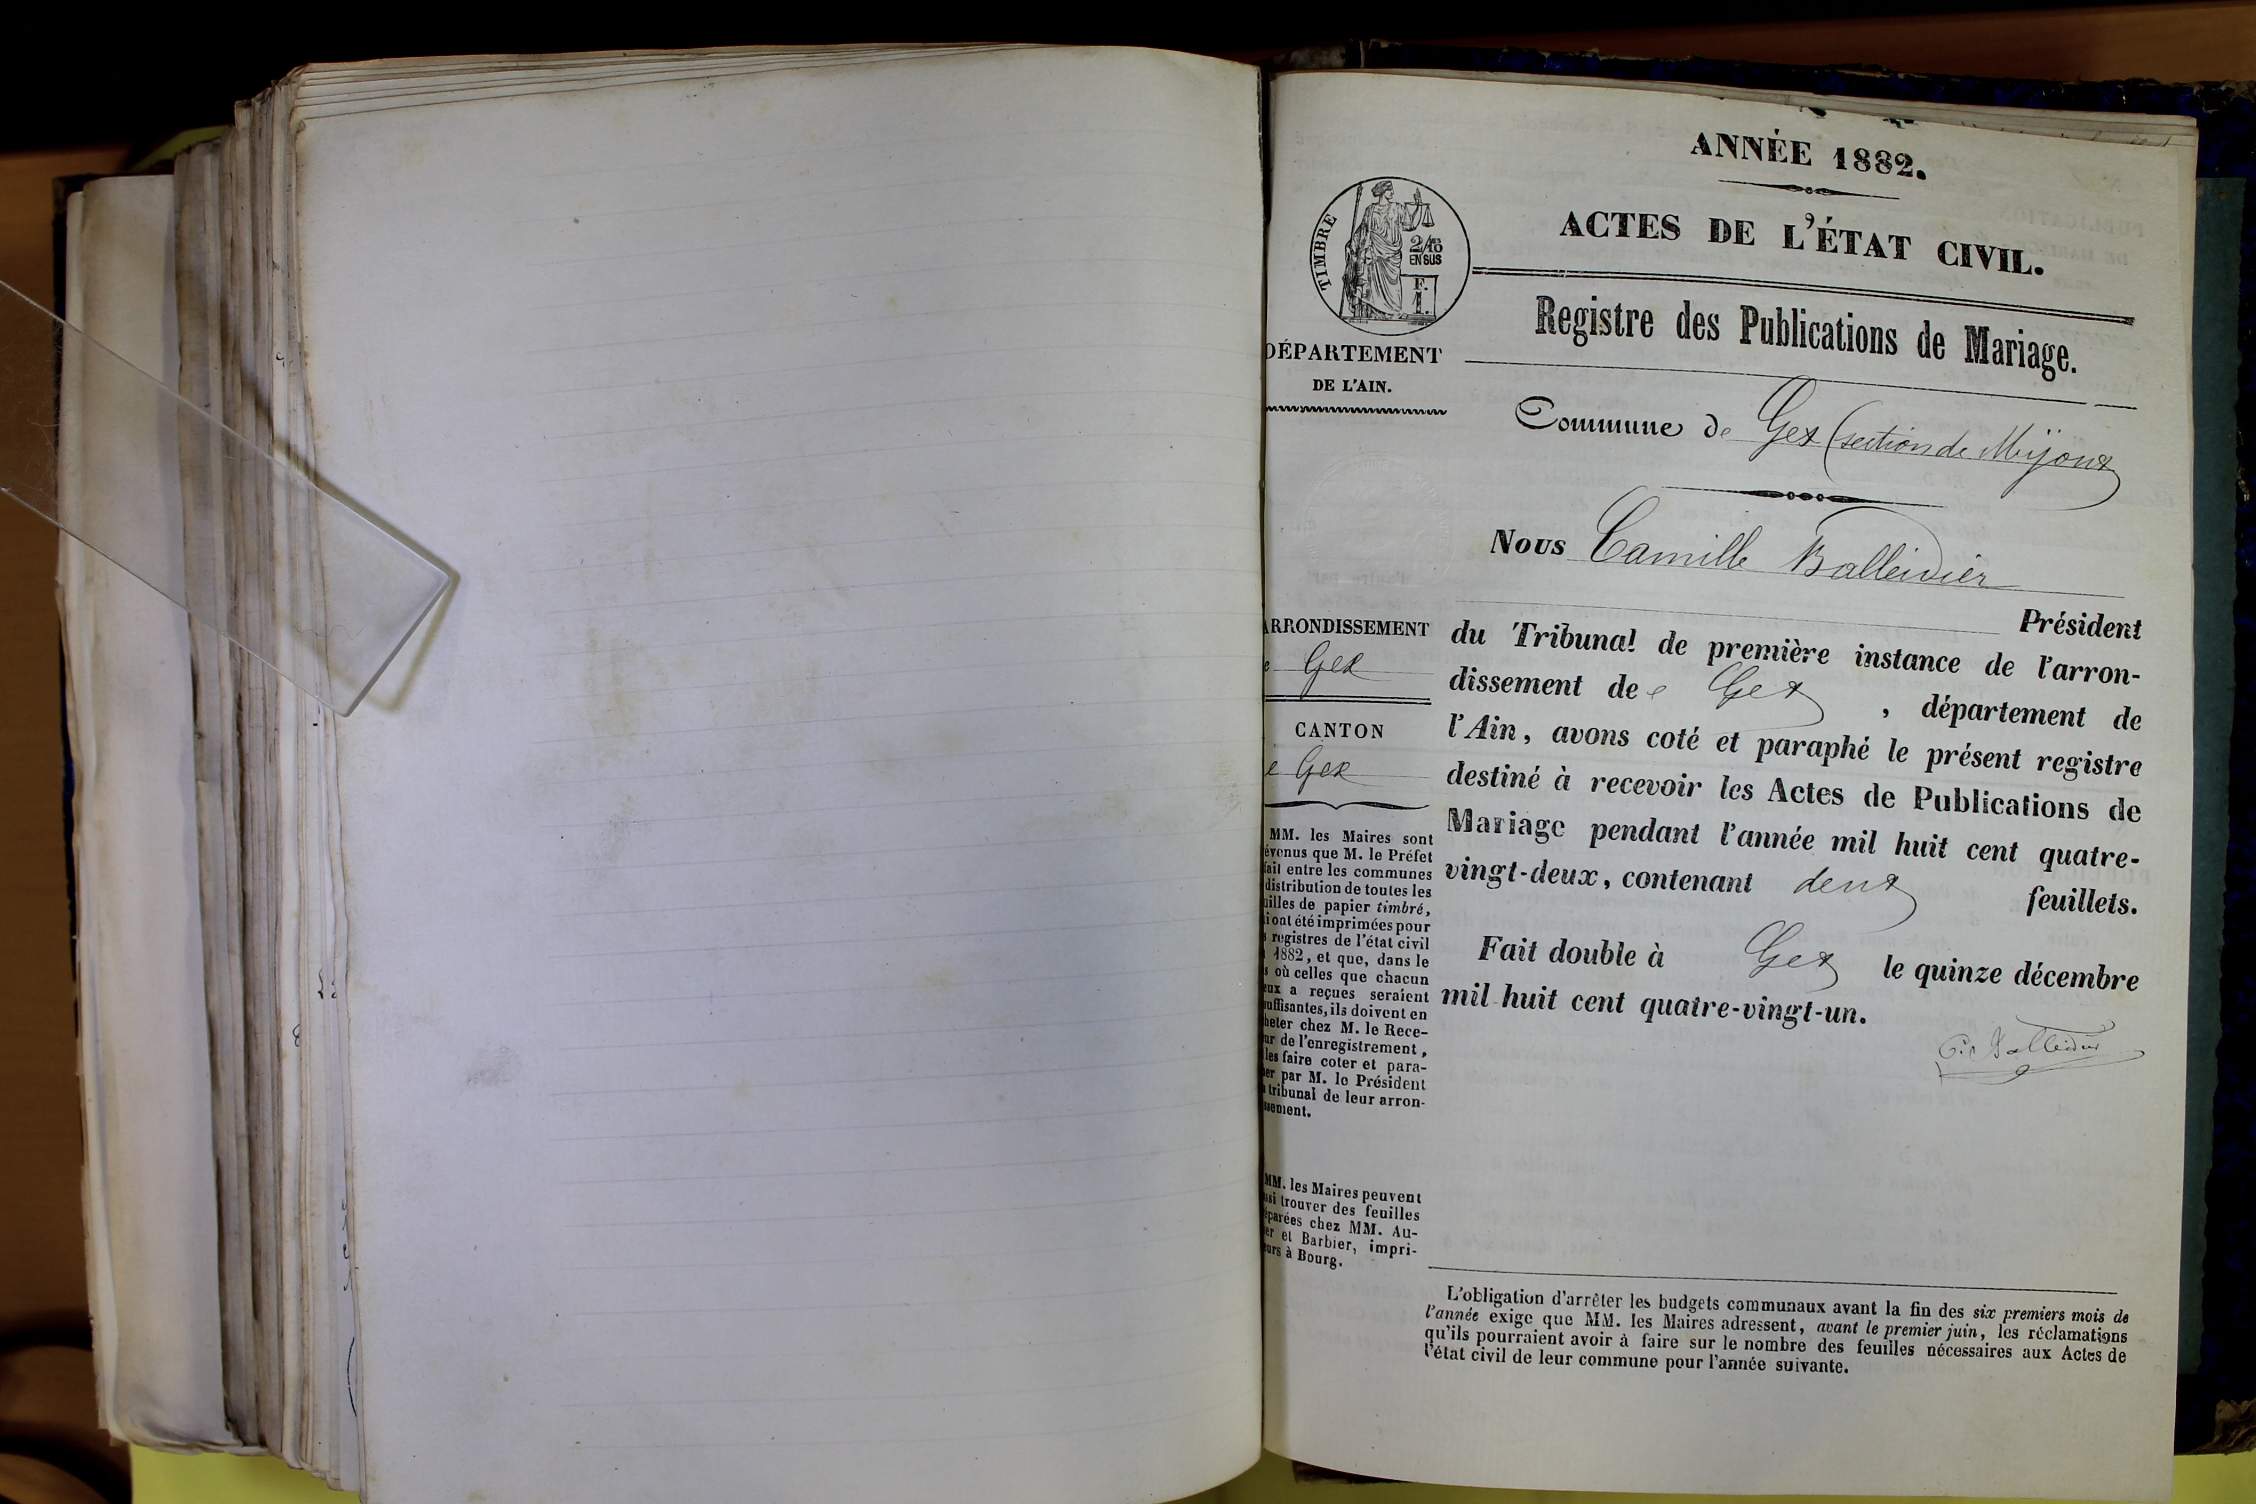 ANNÉE 1882.
ACTES DE L'ÉTAT CIVIL.
TIMBRE
2/10
EN SUS
F.
1.
Registre des Publications de Mariage.
DÉPARTEMENT
DE L'AIN.
Commune de Gex (section de Mijoux)
Nous Camille Balleidier
Président
du Tribunal de première instance de l'arron-
dissement de Gex, département de
l'Ain, avons coté et paraphé le présent registre
destiné à recevoir les Actes de Publications de
Mariage pendant l'année mil huit cent quatre-
vingt-deux, contenant deux feuillets.
Fait double à Gex le quinze décembre
mil huit cent quatre-vingt-un.
C. Balleidier
ARRONDISSEMENT
e Gex
CANTON
e Gex
MM. les Maires sont
évenus que M. le Préfet
fait entre les communes
distribution de toutes les
uilles de papier timbré,
i ont été imprimées pour
s registres de l'état civil
1882, et que, dans le
s où celles que chacun
eux a reçues seraient
uffisantes, ils doivent en
heter chez M. le Rece-
ur de l'enregistrement,
les faire coter et para-
her par M. le Président
u tribunal de leur arron-
ssement.
MM. les Maires peuvent
ssi trouver des feuilles
éparées chez MM. Au-
er et Barbier, impri-
eurs à Bourg.
L'obligation d'arrêter les budgets communaux avant la fin des six premiers mois de
l'année exige que MM. les Maires adressent, avant le premier juin, les réclamations
qu'ils pourraient avoir à faire sur le nombre des feuilles nécessaires aux Actes de
l'état civil de leur commune pour l'année suivante.